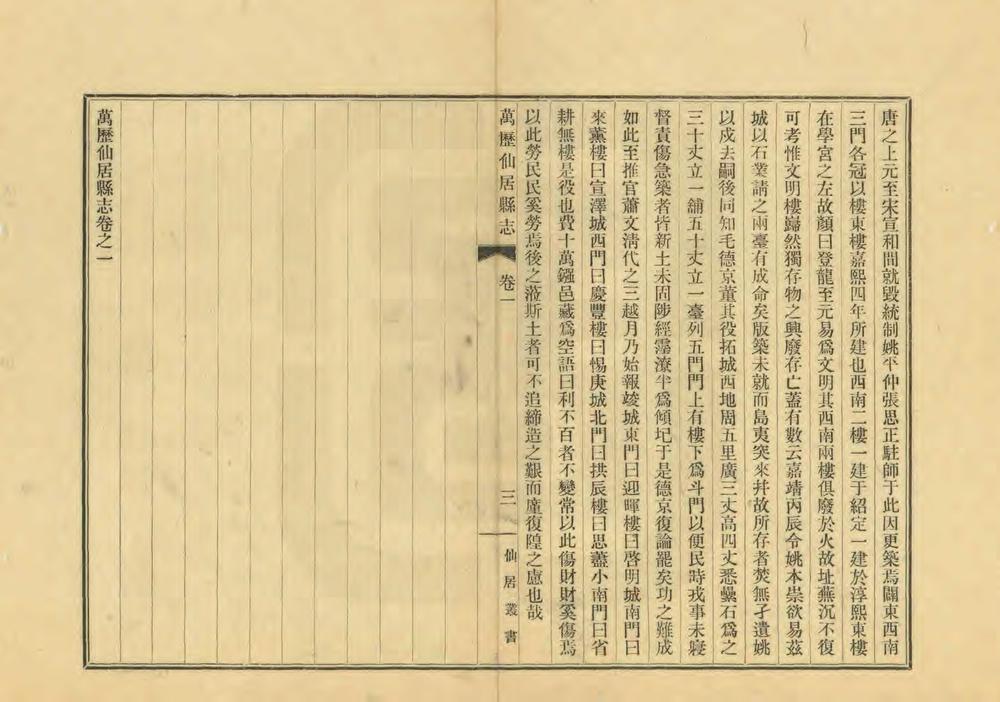 唐之上元至宋宣和間就毀統制姚平仲張思正駐師于此因更築焉闢東西南
三門各冠以樓東樓嘉熙四年所建也西南二樓一建于紹定一建於淳熙東樓
在學宮之左故顏曰登龍至元易爲文明其西南兩樓俱廢於火故址蕪沉不復
可考惟文明樓巋然獨存物之興廢存亡蓋有數云嘉靖丙辰令姚本崇欲易茲
城以石業請之兩臺有成命矣版築未就而島夷突來幷故所存者焚無孑遺姚
以戍去嗣後同知毛德京董其役拓城西地周五里廣三丈高四丈悉壘石爲之
三十丈立一舖五十丈立一臺列五門門上有樓下爲斗門以便民時戎事未寢
督責傷急築者皆新土未固陟經霪潦半爲傾圮于是德京復論罷矣功之難成
如此至推官蕭文淸代之三越月乃始報竣城東門曰迎暉樓曰啓明城南門曰
來薰樓曰宣澤城西門曰慶豐樓曰惕庚城北門曰拱辰樓曰思藎小南門曰省
耕無樓是役也費十萬鏹邑藏爲空語曰利不百者不變常以此傷財財奚傷焉
以此勞民民奚勞焉後之蒞斯土者可不追締造之艱而廑復隍之慮也哉
萬歷仙居縣志 卷一 三 仙居叢書
萬歷仙居縣志卷之一